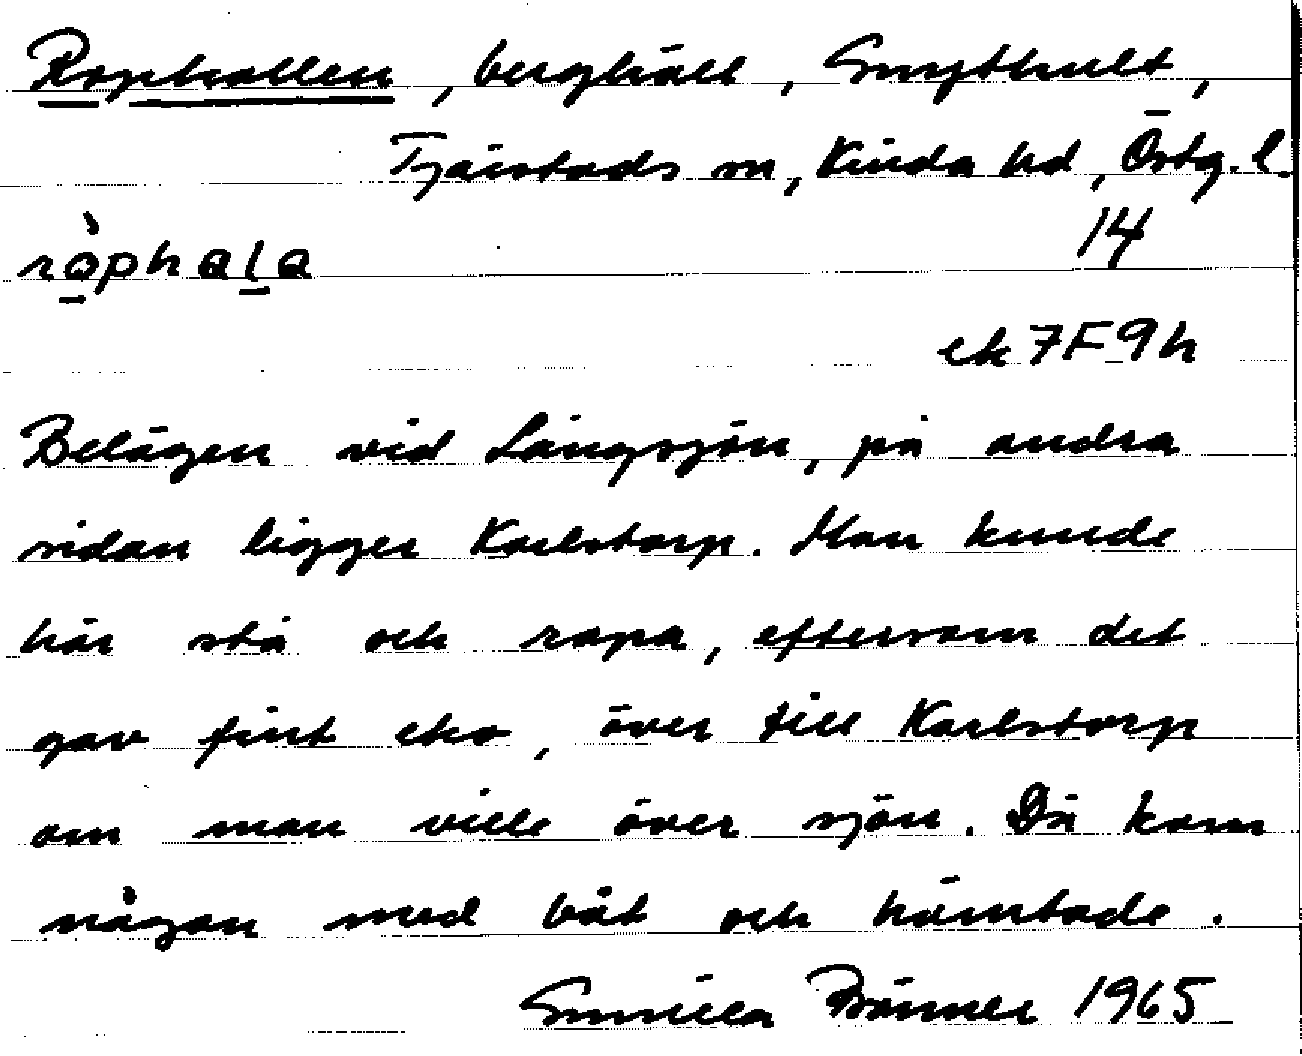 Rophallen, berghäll, Smythult,
Tjärstads sn, Kinda hd, Östg. l.
ròphala 14
ek 7F9h
Belägen vid Långsjön, på andra
sidan ligger Karlstorp. Man kunde
här stå och ropa, eftersom det
gav fint eko, över till Karlstorp
om man ville över sjön. Då kom
någon med båt och hämtade.
Gunilla 1965